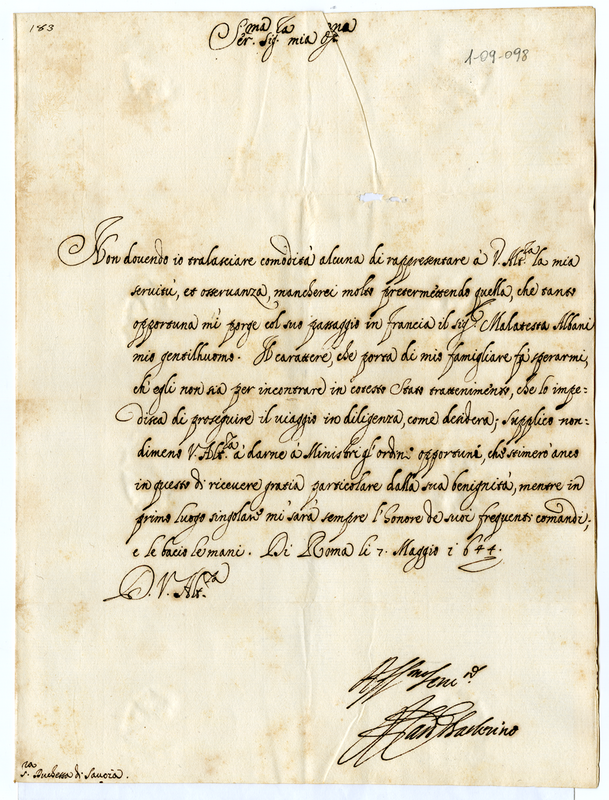 183
Ser.ma Sig.ra mia Oss.ma
1-09-098
Non dovendo io tralasciare comodità alcuna di rappresentare à V. Alt.za la mia
servitù, et osservanza, mancherei molto pretermettendo quella, che tanto
opportuna mi porge col suo passaggio in francia il sig.r Malatesta Albani
mio gentilhuomo. Il carattere, che porta di mio famigliare fà sperarmi,
ch'egli non sia per incontrare in cotesto Stato trattenimento, che lo impe=
disca di proseguire il viaggio in diligenza, come desidera; supplico non=
dimeno V. Alt.za à darne à Ministri gl'ordini opportuni, che stimerò anco
in questo di ricevere gratia particolare dalla sua benignità, mentre in
primo luogo singolare mi sarà sempre l'honore de suoi frequenti comandi;
e le bacio le mani. Di Roma li 7. Maggio 1644.
D. V. Alt.za
Aff.mo ser.re
Barberino
S.ra Duchessa di Savoia.